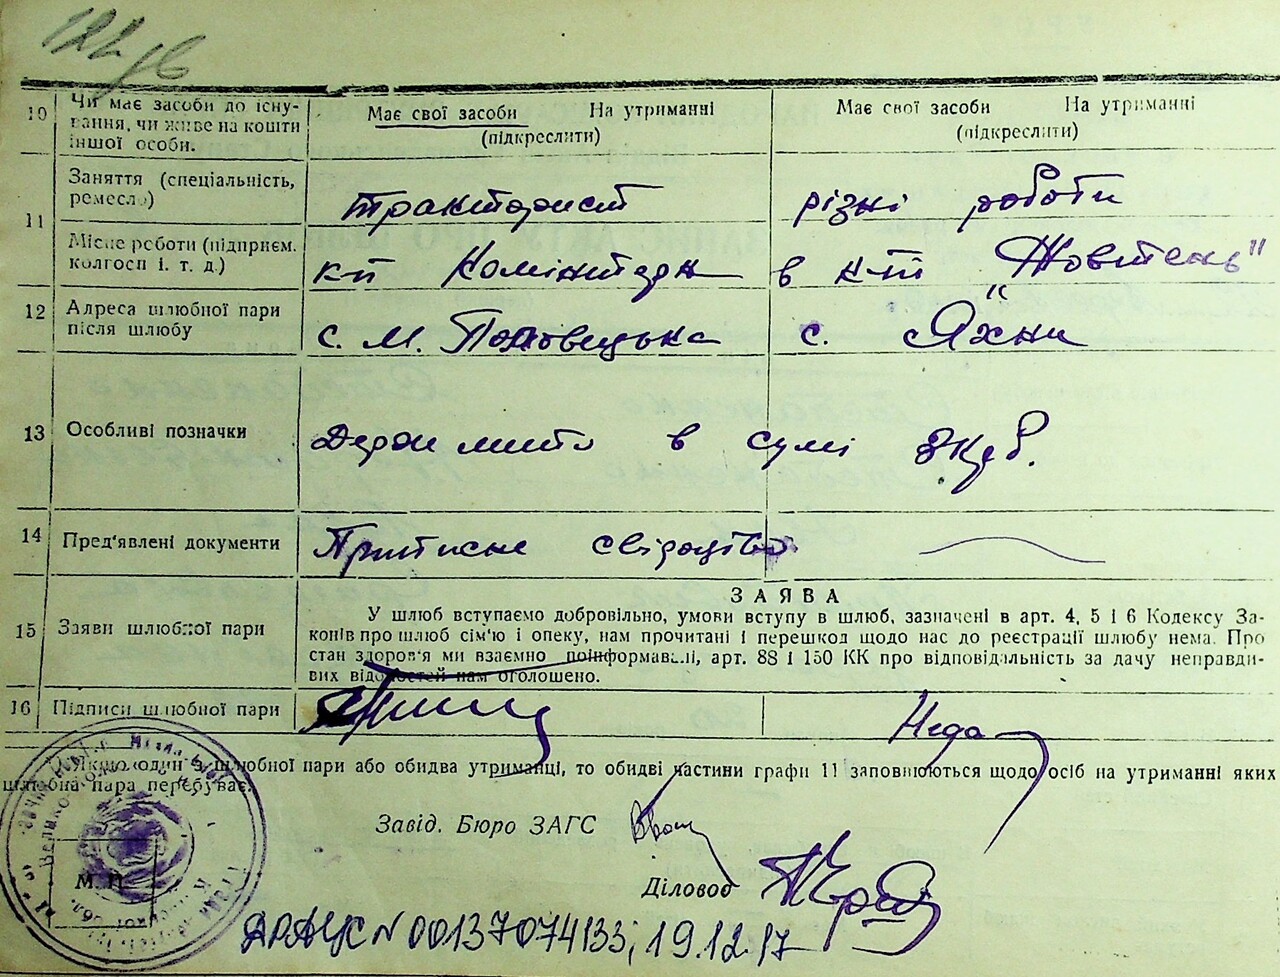 122
10 Чи має засоби до існу-
вання, чи живе на кошти
іншої особи.
Має свої засоби На утриманні
(підкреслити)
Має свої засоби На утриманні
(підкреслити)
11 Заняття (спеціальність,
ремесло)
тракторист
різні роботи
Місце роботи (підприєм.
колгосп і. т. д.)
кп Комінтерн
в к-пі "Жовтень"
12 Адреса шлюбної пари
після шлюбу
с. М. Половецька
с. Яхни
13 Особливі позначки
Держ мито в сумі
14 Пред'явлені документи
Приписне свідоцтво
ЗАЯВА
15 Заяви шлюбної пари
У шлюб вступаємо добровільно, умови вступу в шлюб, зазначені в арт. 4, 5 і 6 Кодексу За-
конів про шлюб сім'ю і опеку, нам прочитані і перешкод щодо нас до реєстрації шлюбу нема. Про
стан здоров'я ми взаємно поінформавалі, арт. 88 і 150 КК про відповідальність за дачу неправди-
вих відомостей нам оголошено.
16 Підписи шлюбної пари
Якщо один з шлюбної пари або обидва утриманці, то обидві частини графи 11 заповнюються щодо осіб на утриманні яких
шлюбна пара перебуває.
Завід. Бюро ЗАГС
Діловод
М. П.
ДРАЦС N 00137074133; 19.12.17